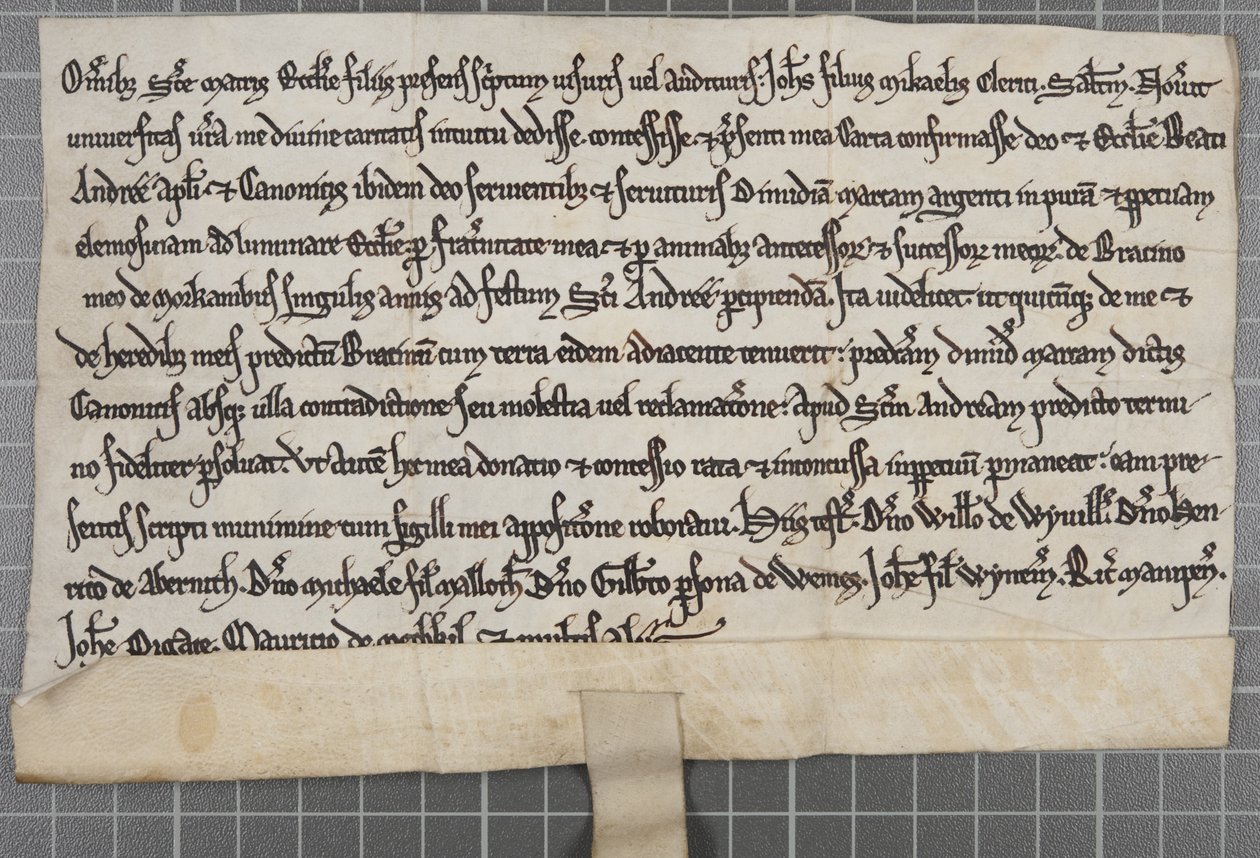 Om̅ibꝫ Sc̅e Matris Eccl̅ie filiis presens sc̅ptum uisuris uel audituris: Joh̅s filius Mikaelis Clerici. Sal̅tm. Nou͛it
uniuersitas ur̅a me diuine caritatis intuitu dedisse. concessisse. ⁊ p͛senti mea Carta confirmasse deo ⁊ Eccl̅ie Beati
Andree apl̅i. ⁊ Canonicis ibidem deo seruientibꝫ ⁊ seruituris Dimidiā Marcam argenti in purā ⁊ ꝑpetuam
elemosinam ad luminare Eccl̅ie. ꝑ frat͛nitate mea ⁊ ꝑ animabꝫ antecessoꝝ ⁊ successoꝝ meoꝝ: de Bracino
meo de Morkambris singulis annis ad festum Sc̅i Andree ꝑcipiendā. Ita uidelicet. ut quicūqꝫ de me ⁊
de heredibꝫ meis predictū Bracinū cum terra eidem adiacente tenuerit: predc̅am dimid̅ Marcam dictis
Canonicis absqꝫ ulla contradictione seu molestia uel reclamac̅one: apud Sc̅m Andream predicto termi-
no fideliter ꝑsoluat. Vt autē hec mea donatio ⁊ concessio rata ⁊ inconcussa inꝑpetuū ꝑmaneat: eam pre-
sentis scripti munimine cum sigilli mei apposic̅one roboraui. Hiis test̅. Dn̅o Will̅o de Wyuill̅. Dn̅o Hen-
rico de Abernith. Dn̅o Michaele fil̅ Malloth̅. Dn̅o Gilb̅to ꝑsona de Wemes. Joh̅e fil̅ Wynem̅. Ric̅ Manipen̅.
Joh̅e Mauricio de ⁊ multis aliis